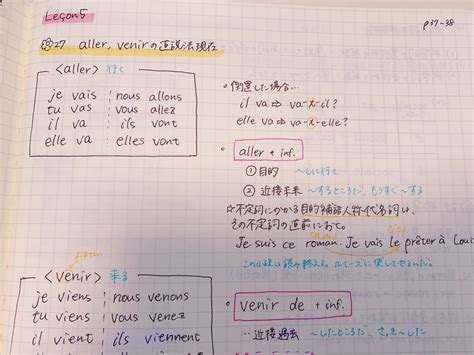 Leçon5
p37-38
27 aller, venirの直説法現在
<aller> 行く
je vais nous allons
tu vas vous allez
il va ils vont
elle va elles vont
・倒置した場合…
il va ⇨ va-t-il?
elle va ⇨ va-t-elle?
aller + inf.
① 目的 〜しに行く
② 近接未来 〜するところだ、もうすぐ〜する
☆不定詞にかかる目的補語人称代名詞は、
その不定詞の直前におく。
Je suis ce roman. Je vais le prêter à
<venir> 来る
je viens nous venons
tu viens vous venez
il vient ils viennent
venir de + inf.
… 近接過去 〜したところだ、さっき〜した